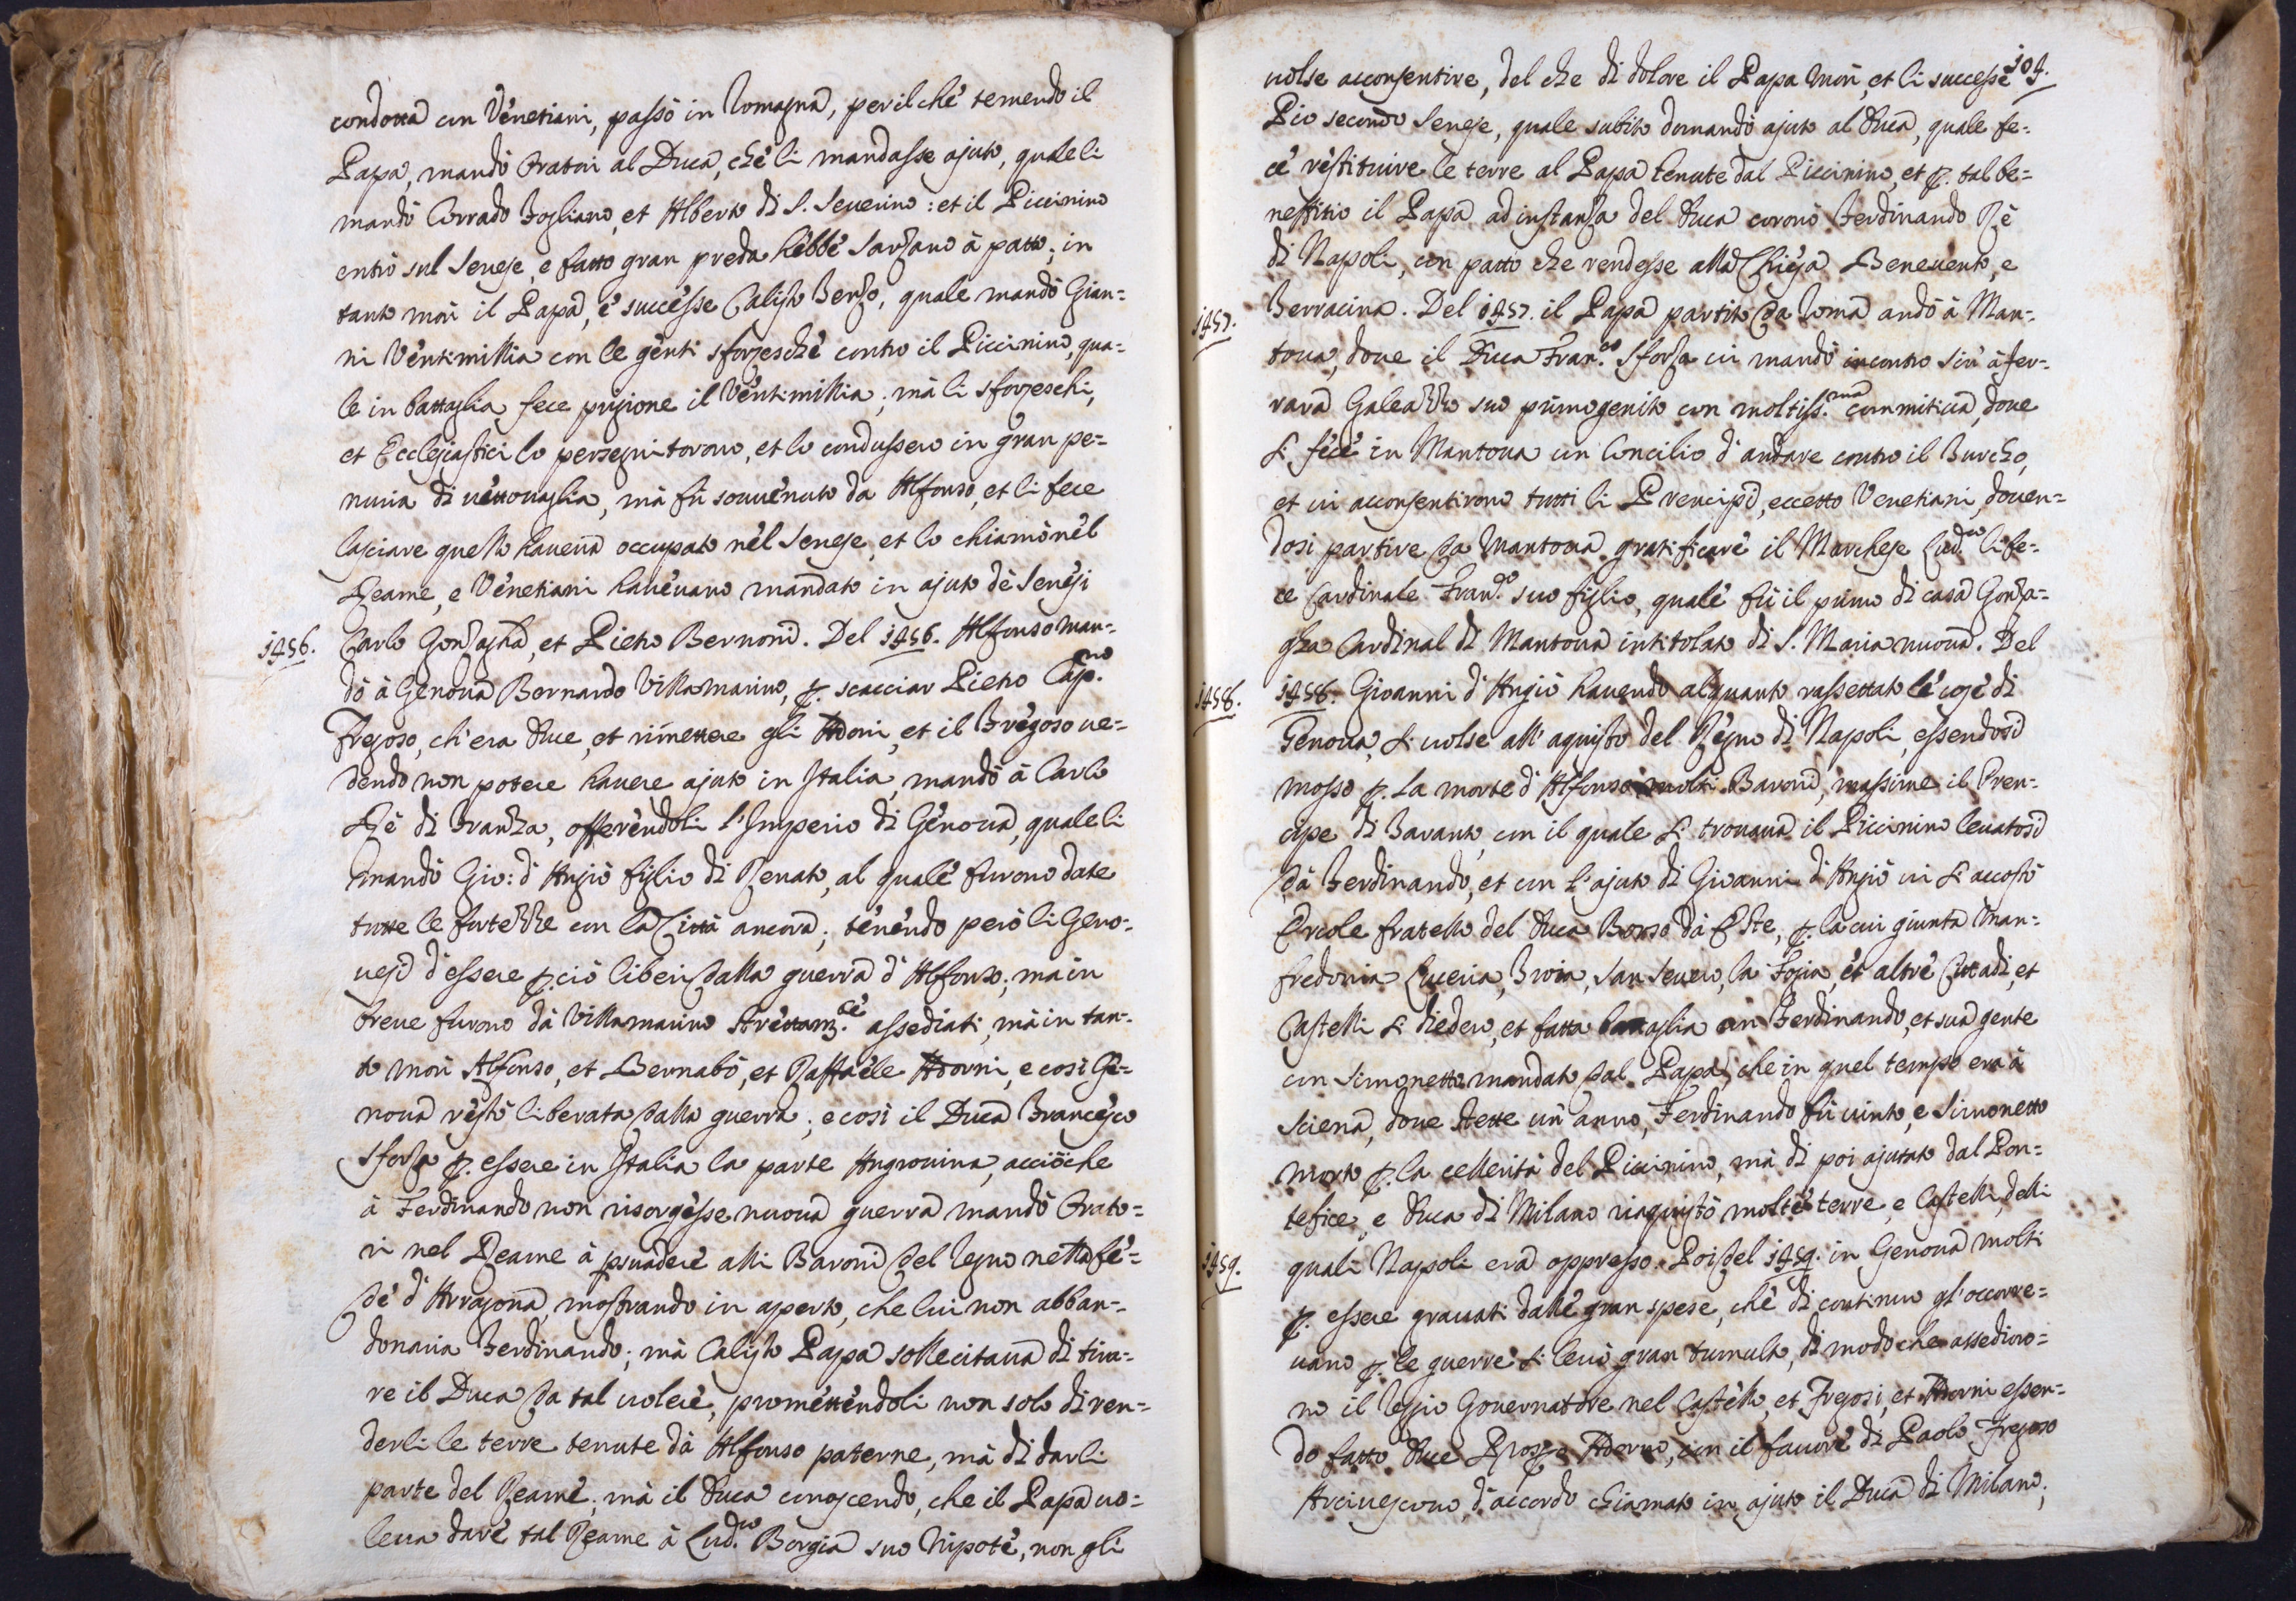 condotta con Venetiani, passò in Romagna, per il che temendo il
Papa, mandò Oratori al Duca, che li mandasse ajuto, quale li
mandò Corrado Fogliano, et Alberto di S. Severino: et il Piccinino
entrò sul Senese, e fatto gran preda hebbe Sarzano à patto; in
tanto morì il Papa, e successe Calisto Terzo, quale mandò Gian-
ni Ventimillia con le genti sforzesche contro il Piccinino, qua-
le in battaglia fece prigione il Ventimillia; mà li sforzeschi,
et Ecclesiastici lo perseguitorono, et lo condussero in gran pe-
nuria di vettovaglia, mà fù souuenuto da Alfonso, et li fece
lasciare quello haueua occupato nel Senese, et lo chiamò nel
Reame, e Venetiani haueuano mandato in ajuto de Senesi
1456. Carlo Gonzagha, et Pietro Bernoni. Del 1456. Alfonso man-
dò à Genoua Bernardo Villamarino, p. scacciar Pietro Cap.no
Fregoso, ch'era Duce, et rimettere gli Adorni, et il Fregoso ue-
dendo non potere hauere ajuto in Italia, mandò à Carlo
Rè di Franza, offerendoli l'Imperio di Genoua, quale li
mandò Gio: d'Angiò figlio di Renato, al quale furono date
tutte le fortezze con la Città ancora; tenendo però li Geno-
uesi d'essere p. ciò liberi dalla guerra d'Alfonso; ma in
breue furono dà Villamarino strettam.te assediati, mà in tan-
to morì Alfonso, et Bernabò, et Raffaele Adorni, e così Ge-
noua restò liberata dalla guerra; e così il Duca Francesco
Sforza p. essere in Italia la parte Angiouina, acciòche
à Ferdinando non risorgesse nuoua guerra mandò Orato-
ri nel Reame à psuadere alli Baroni del Regno nella fe-
de d'Arragona, mostrando in aperto, che lui non abban-
donaria Ferdinando; mà Calisto Papa sollecitaua di tira-
re il Duca da tal uolere, promettendoli non solo di ren-
derli le terre tenute dà Alfonso paterne, mà di darli
parte del Reame; mà il Duca conoscendo, che il Papa uo-
leua dare tal Reame à Lud.co Borgia suo Nipote, non gli
104.
uolse acconsentire, del che di dolore il Papa morì, et li successe
Pio secondo Senese, quale subito domandò ajuto al Duca, quale fe-
ce restituire le terre al Papa tenute dal Piccinino, et p. tal be-
neffitio il Papa ad instanza del Duca coronò Ferdinando Rè
di Napoli, con patto che rendesse alla Chiesa Beneuento, e
1457. Terracina. Del 1457. il Papa partito da Roma andò à Man-
toua, doue il Duca Fran.co Sforza ui mandò incontro sin' à fer-
rara Galeazzo suo primogenito con moltiss.ma commitiua, doue
si fece in Mantoua un Concilio d'andare contro il Turcho,
et ui acconsentirono tutti li Prencipi, eccetto Venetiani, douen-
dosi partire da Mantoua gratificare il Marchese Lud.co li fe-
ce Cardinale Fran.co suo figlio, quale fù il primo di casa Gonza-
gha Cardinal di Mantoua intitolato di S. Maria nuoua. Del
1458. 1458. Giovanni d'Angiò hauendo alquanto rassettato le cose di
Genoua, si uolse all'aquisto del Regno di Napoli, essendosi
mosso p. la morte d'Alfonso molti Baroni, massime il Pren-
cipe di Taranto, con il quale si trouaua il Piccinino leuatosi
dà Ferdinando, et con l'ajuto di Giovanni d'Angiò ui si accostò
Ercole fratello del Duca Borso dà Este, p. la cui giunta Man-
fredonia Luceria, Troia, San Seuero, la Fogia, et altre Cittadi, et
Castelli si diedero, et fatta battaglia con Ferdinando, et sua gente
con Simonetto mandato dal Papa, che in quel tempo era à
Sciena, doue stette un'anno, Ferdinando fù uinto, e Simonetto
morto p. la cellerità del Piccinino, mà di poi ajutato dal Pon-
tefice, e Duca di Milano riaquistò molte terre, e Castelli, delli
1459. quali Napoli era oppresso. Poi del 1459. in Genoua molti
p. essere grauati dalle gran spese, che di continuo gl'occorre-
uano p. le guerre si leuò gran tumulto, di modo che assediоro-
no il Regio Gouernatore nel Castello, et Fregosi, et Adorni essen-
do fatto Duce Prosp.o Adorno, con il fauore di Paolo Fregoso
Arciuescouo, d'accordo chiamato in ajuto il Duca di Milano;